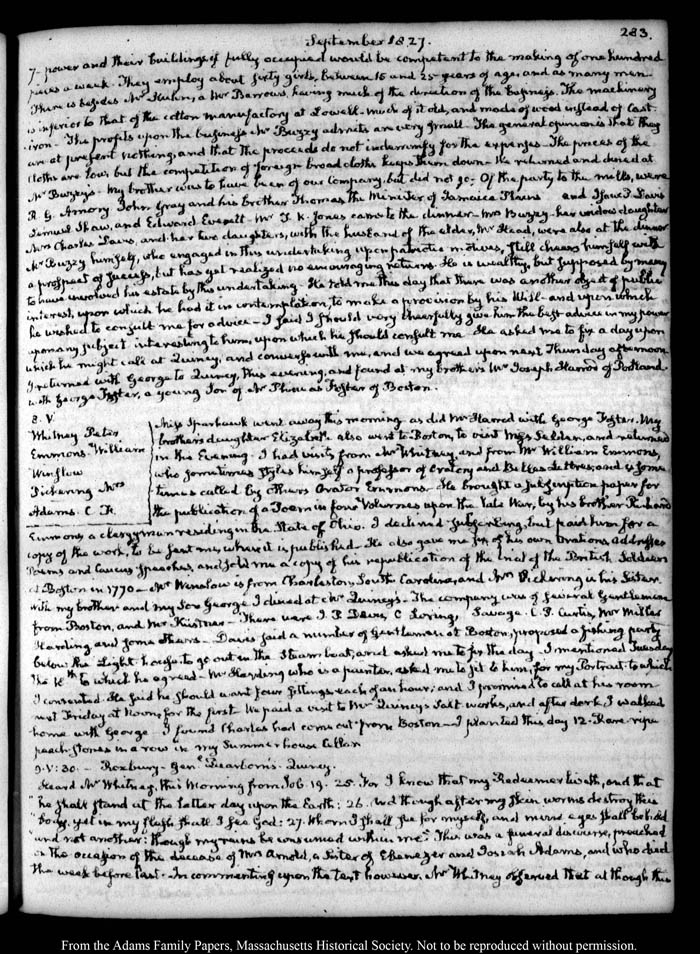 283.
September 1827.
7- power and their buildings if fully occupied would be competent to the making of one hundred
pieces a week. They employ about sixty girls, between 15 and 25 years of age, and as many men.
There is besides Mr Kuhn, a Mr Barrows, having much of the direction of the business. The machinery
is inferior to that of the cotton manufactory at Lowell- much of it old, and made of wood instead of Cast
iron. The profits upon the business Mr Bussey admits are very small. The general opinion is that they
are at present nothing, and that the proceeds do not indemnify for the expenses. The prices of the
Cloths are low, but the competition of foreign broad cloths keeps them down. We returned and dined at
Mr Bussey's. My brother was to have been of our Company, but did not go. Of the party to the mills, were
R. G. Amory John Gray and his brother Thomas the Minister of Jamaica Plains and Isaac P. Davis
Lemuel Shaw, and Edward Everett- Mr T. K. Jones came to the dinner. Mrs Bussey- her widow daughter
Mrs Charles Davis, and her two daughters, with the husband of the elder, Mr Head, were also at the dinner
Mr Bussey himself, who engaged in this undertaking upon patriotic motives, still cheers himself with
a prospect of success, but has yet realized no encouraging returns. He is wealthy, but supposed by many
to have involved his estate by this undertaking. He told me this day that there was another object of public
interest, upon which he had it in contemplation, to make a provision by his Will- and upon which
he wished to consult me for advice- I said I should very cheerfully give him the best advice in my power
upon any subject interesting to him, upon which he should consult me. He asked me to fix a day upon
which he might call at Quincy, and converse with me, and we agreed upon next Thursday afternoon
I returned with George to Quincy, this evening, and found at my brother's Mr Joseph Harrod of Portland.
with George Foster, a young son of Mr Phineas Foster of Boston.
8. V.
Whitney Peter
Emmons William
Winslow
Pickering Mrs
Adams. C. F.
Miss Sparhawk went away this morning as did Mr Harrod with George Foster. My
brother's daughter Elizabeth also went to Boston, to visit Miss Selden, and returned
in the Evening. I had visits from Mr Whitney, and from Mr William Emmons,
who sometimes styles himself a professor of Oratory and Belles Lettres, and is some-
times called by others Orator Emmons. He brought a subscription paper for
the publication of a Poem in four Volumes upon the late War, by his brother Richard
Emmons a clergyman residing in the State of Ohio. I declined subscribing, but paid him for a
copy of the work, to be sent me, when it is published. He also gave me six of his own Orations, addresses
Poems and Caucus speeches, and sold me a copy of his republication of the trial of the British Soldiers
at Boston in 1770- Mr Winslow is from Charleston, South Carolina, and Mrs Pickering is his Sister.
With my brother and my Son George I dined at Mr Quincy's. The company was of several Gentlemen
from Boston, and Mr Kistner. There were I. P. Davis, C Loring, Savage. C. P. Curtis, Mr Miller
Harding and some others. Davis said a number of Gentlemen at Boston, proposed a fishing party
below the Light-house, to go out in the Steam boat, and asked me to fix the day. I mentioned Tuesday
the 18th to which he agreed. Mr Harding who is a painter, asked me to sit to him, for my Portrait to which
I consented. He said he should want four sittings, each of an hour; and I promised to call at his room
next Friday at Noon, for the first. We paid a visit to Mr Quincy's Salt works, and after dark, I walked
home with George. I found Charles had come out from Boston- I planted this day 12. Rare-ripe
peach-stones in a row in my Summerhouse Cellar
9. V: 30.- Roxbury- Genl Dearborn's- Quincy.
Heard Mr Whitney, this Morning from Job. 19. 25. For I know that my Redeemer liveth, and that
"he shall stand at the latter day upon the Earth: 26. And though after my skin worms destroy this
"body, yet in my flesh shall I see God: 27. Whom I shall see for myself, and mine eyes shall behold
and not another: though my reins be consumed within me." This was a funeral discourse, preached
on the occasion of the decease of Mrs Arnold, a Sister of Ebenezer and Josiah Adams, and who died
the week before last. In commenting upon the text however, Mr Whitney observed that although this
From the Adams Family Papers, Massachusetts Historical Society. Not to be reproduced without permission.